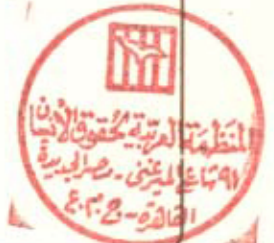 المنظمة العربية لحقوق الإنسان
٩١ شارع الميرغنى - مصر الجديدة
القاهرة - ج.م.ع